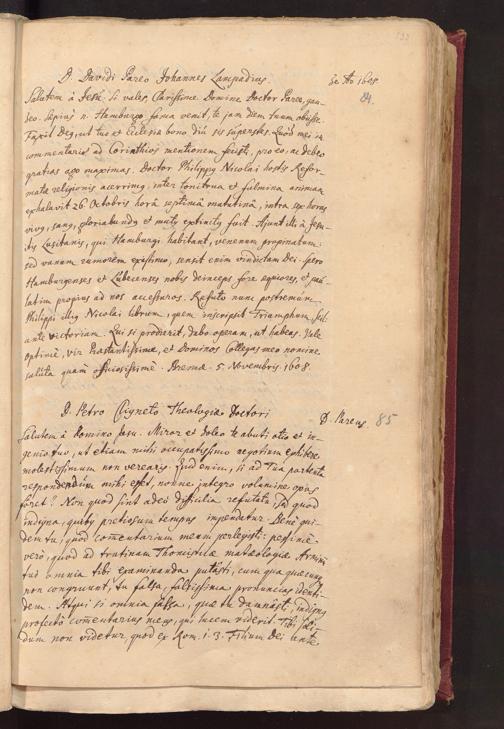 D. Davidi Pareo Johannes Lampadius.
de Ao 1608.
84.
Salutem à Jesu. Si vales, Clarissime Domine Doctor Paree, gau-
deo. Sæpius n. Hamburgo fama venit, te jam diem tuum obiisse.
Faxit Deus, ut tuo et Ecclesiæ bono diu sis superstes. Quod mei in
commentario ad Corinthios mentionem fecisti, pro eo, ac debeo
gratias ago maximas. Doctor Philippus Nicolai hostis Refor-
matæ religionis acerrimus, inter tonitrua et fulmina animam
exhalavit 26 Octobris horâ septimâ matutinâ, intra sex horas
vivus, sanus, gloriabundus et mutus extinctus fuit. Ajunt illi à Jesu-
itis Lusitanis, qui Hamburgi habitant, venenum propinatum:
sed vanum rumorem existimo, sensit enim vindictam Dei. Spero
Hamburgenses et Lubecenses nobis deinceps fore æquiores, et pau-
latim propius ad nos accessuros. Refuto nunc postremum
Philippi illius Nicolai librum, quem inscripsit Triumphum,
ante victoriam. Qui si prodierit, dabo operam, ut habeas. Vale
optimè, vir Præstantissime, et Dominos Collegas meo nomine
saluta quam officiosissimè. Bremæ. 5. Novembris. 1608.
D. Petro Cigneto Theologiæ Doctori
D. Pareus.
85
Salutem à Domino Jesu. Miror et doleo te abuti otio et in-
genio tuo, ut etiam mihi occupatissimo negotium exhibere
molestissimum non verearis. Quid enim, si ad Tua portenta
respondendum mihi esset, nonne integro volumine opus
foret? Non quod sint adeò difficilia refutatu, sed quod
indigna, quibus pretiosum tempus impendatur. Benè qui-
dem tu, quod commentarium meum perlegisti: pessimè
verò, quod ad trutinam Thomisticæ matæologiæ
omnia tibi examinanda putasti, cum qua quæcunque
non congruunt, tu falsa, falsissima pronuncias identi-
dem. Atqui si omnia falsa, quæ tu damnasti, indignus
profectò commentarius meus, qui lucem viderit. Tibi
dum non videtur, quod ex Rom. 1. 3. Filium Dei ante